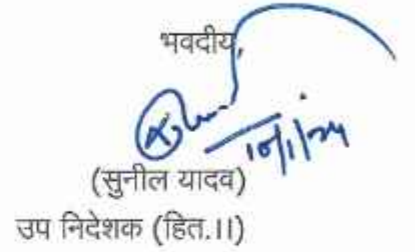 भवदीय,
10/1/24
(सुनील यादव)
उप निदेशक (हित.।।)